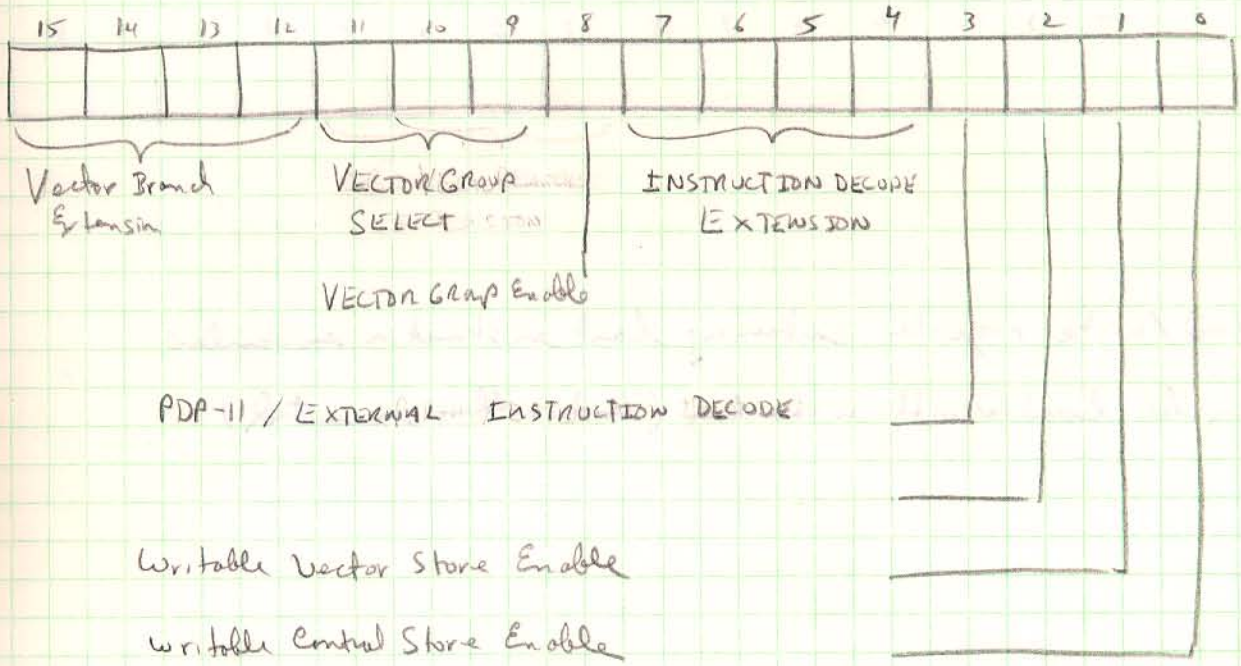 15 14 13 12 11 10 9 8 7 6 5 4 3 2 1 0
Vector Branch VECTOR GROUP INSTRUCTION DECODE
Extension SELECT EXTENSION
VECTOR GROUP Enable
PDP-11 / EXTERNAL INSTRUCTION DECODE
Writable Vector Store Enable
Writable Control Store Enable